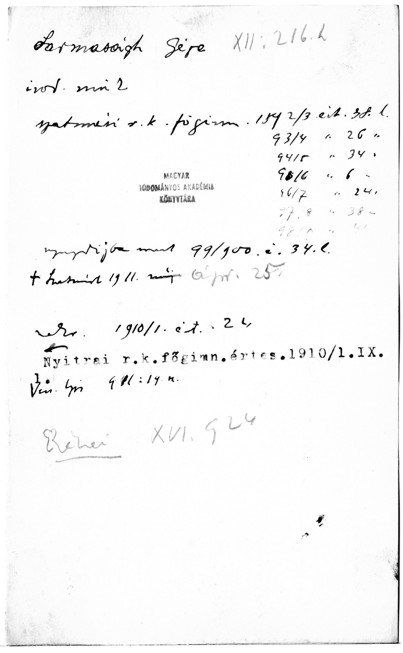 Sarmaságh Géza XII: 216. l.
irod. műk
szatmári r. k. főgimn. 1892/3 ért. 38. l.
93/4 " 26 "
94/5 " 34 "
95/6 " 6 "
96/7 " 24 "
97/8 " 38 "
MAGYAR
TUDOMÁNYOS AKADÉMIA
KÖNYVTÁRA
nyugdijba ment 99/900. é. 34. l.
† Szatmár 1911. ápr. 25.
1910/1. ért. 24
Nyitrai r.k.főgimn.értes.1910/1.IX.
911: 14 n.
XVI. 924